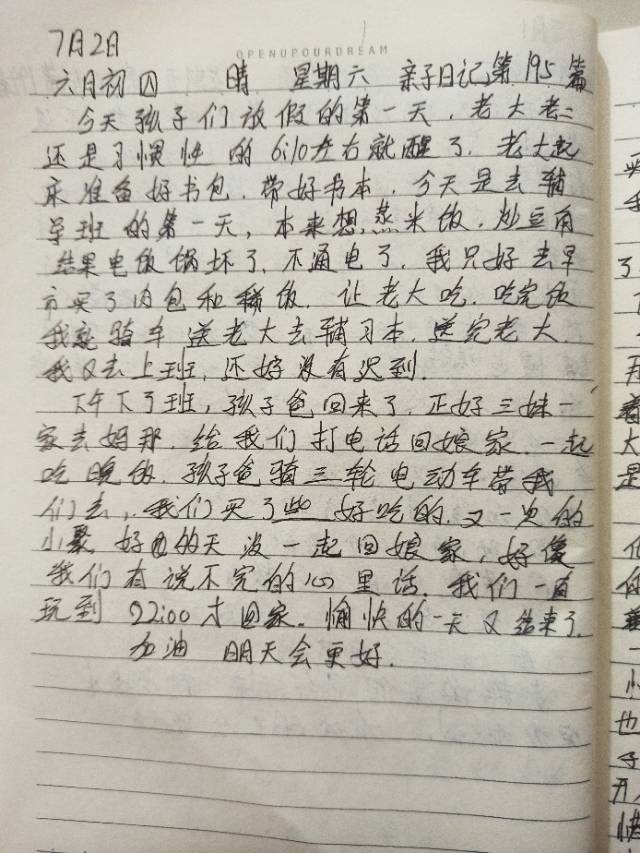 7月2日
OPENUPOURDREAM
六月初四 晴 星期六 亲子日记第195篇
今天孩子们放假的第一天，老大老二
还是习惯性的6:10左右就醒了．老大起
床准备好书包．带好书本．今天是去辅
导班的第一天，本来想蒸米饭．炒豆角
结果电饭锅坏了．不通电了．我只好去早
市买了肉包和稀饭．让老大吃．吃完饭
我就骑车送老大去辅习本．送完老大．
我又去上班，还好没有迟到．
下午下了班，孩子爸回来了．正好三妹一
家去妈那．给我们打电话回娘家．一起
吃晚饭．孩子爸骑三轮电动车带我
们去，我们买了些好吃的．又一次的
小聚 好的天没一起回娘家，好像
我们有说不完的心里话．我们一直
玩到22:00才回家．愉快的一天又结束了．
加油 明天会更好．